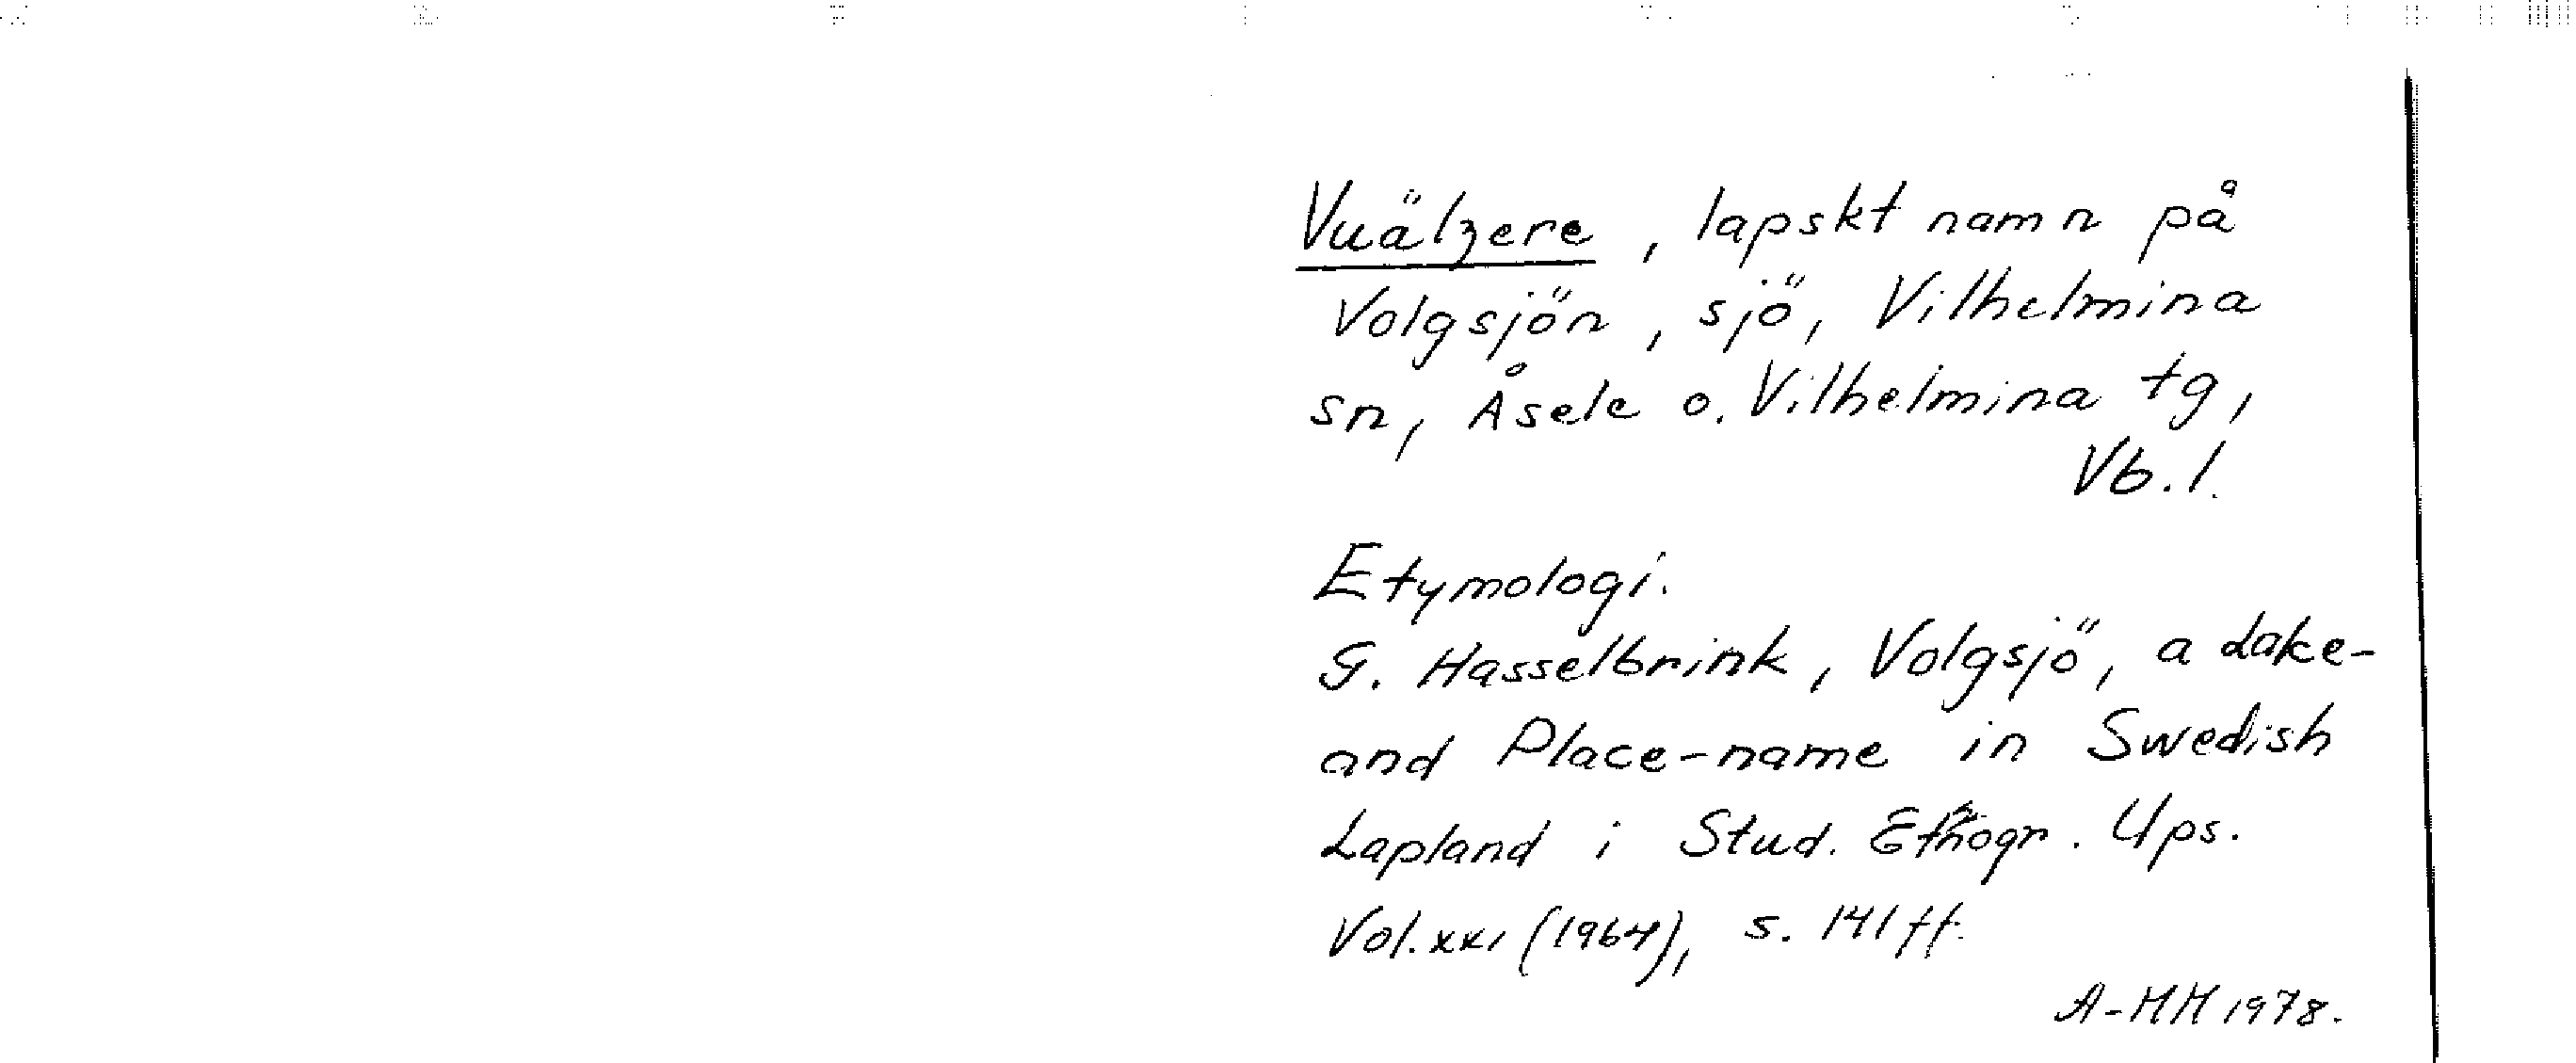 Vuälzere, lapskt namn på
Volgsjön, sjö, Vilhelmina
sn, Åsele o. Vilhelmina tg,
Vb. l.
Etymologi.
G. Hasselbrink, Volgsjö, a Lake-
and Place-name in Swedish
Lapland i Stud. Ethnogr. Ups.
Vol. XXI (1964), s. 141 ff.
A-MM 1978.